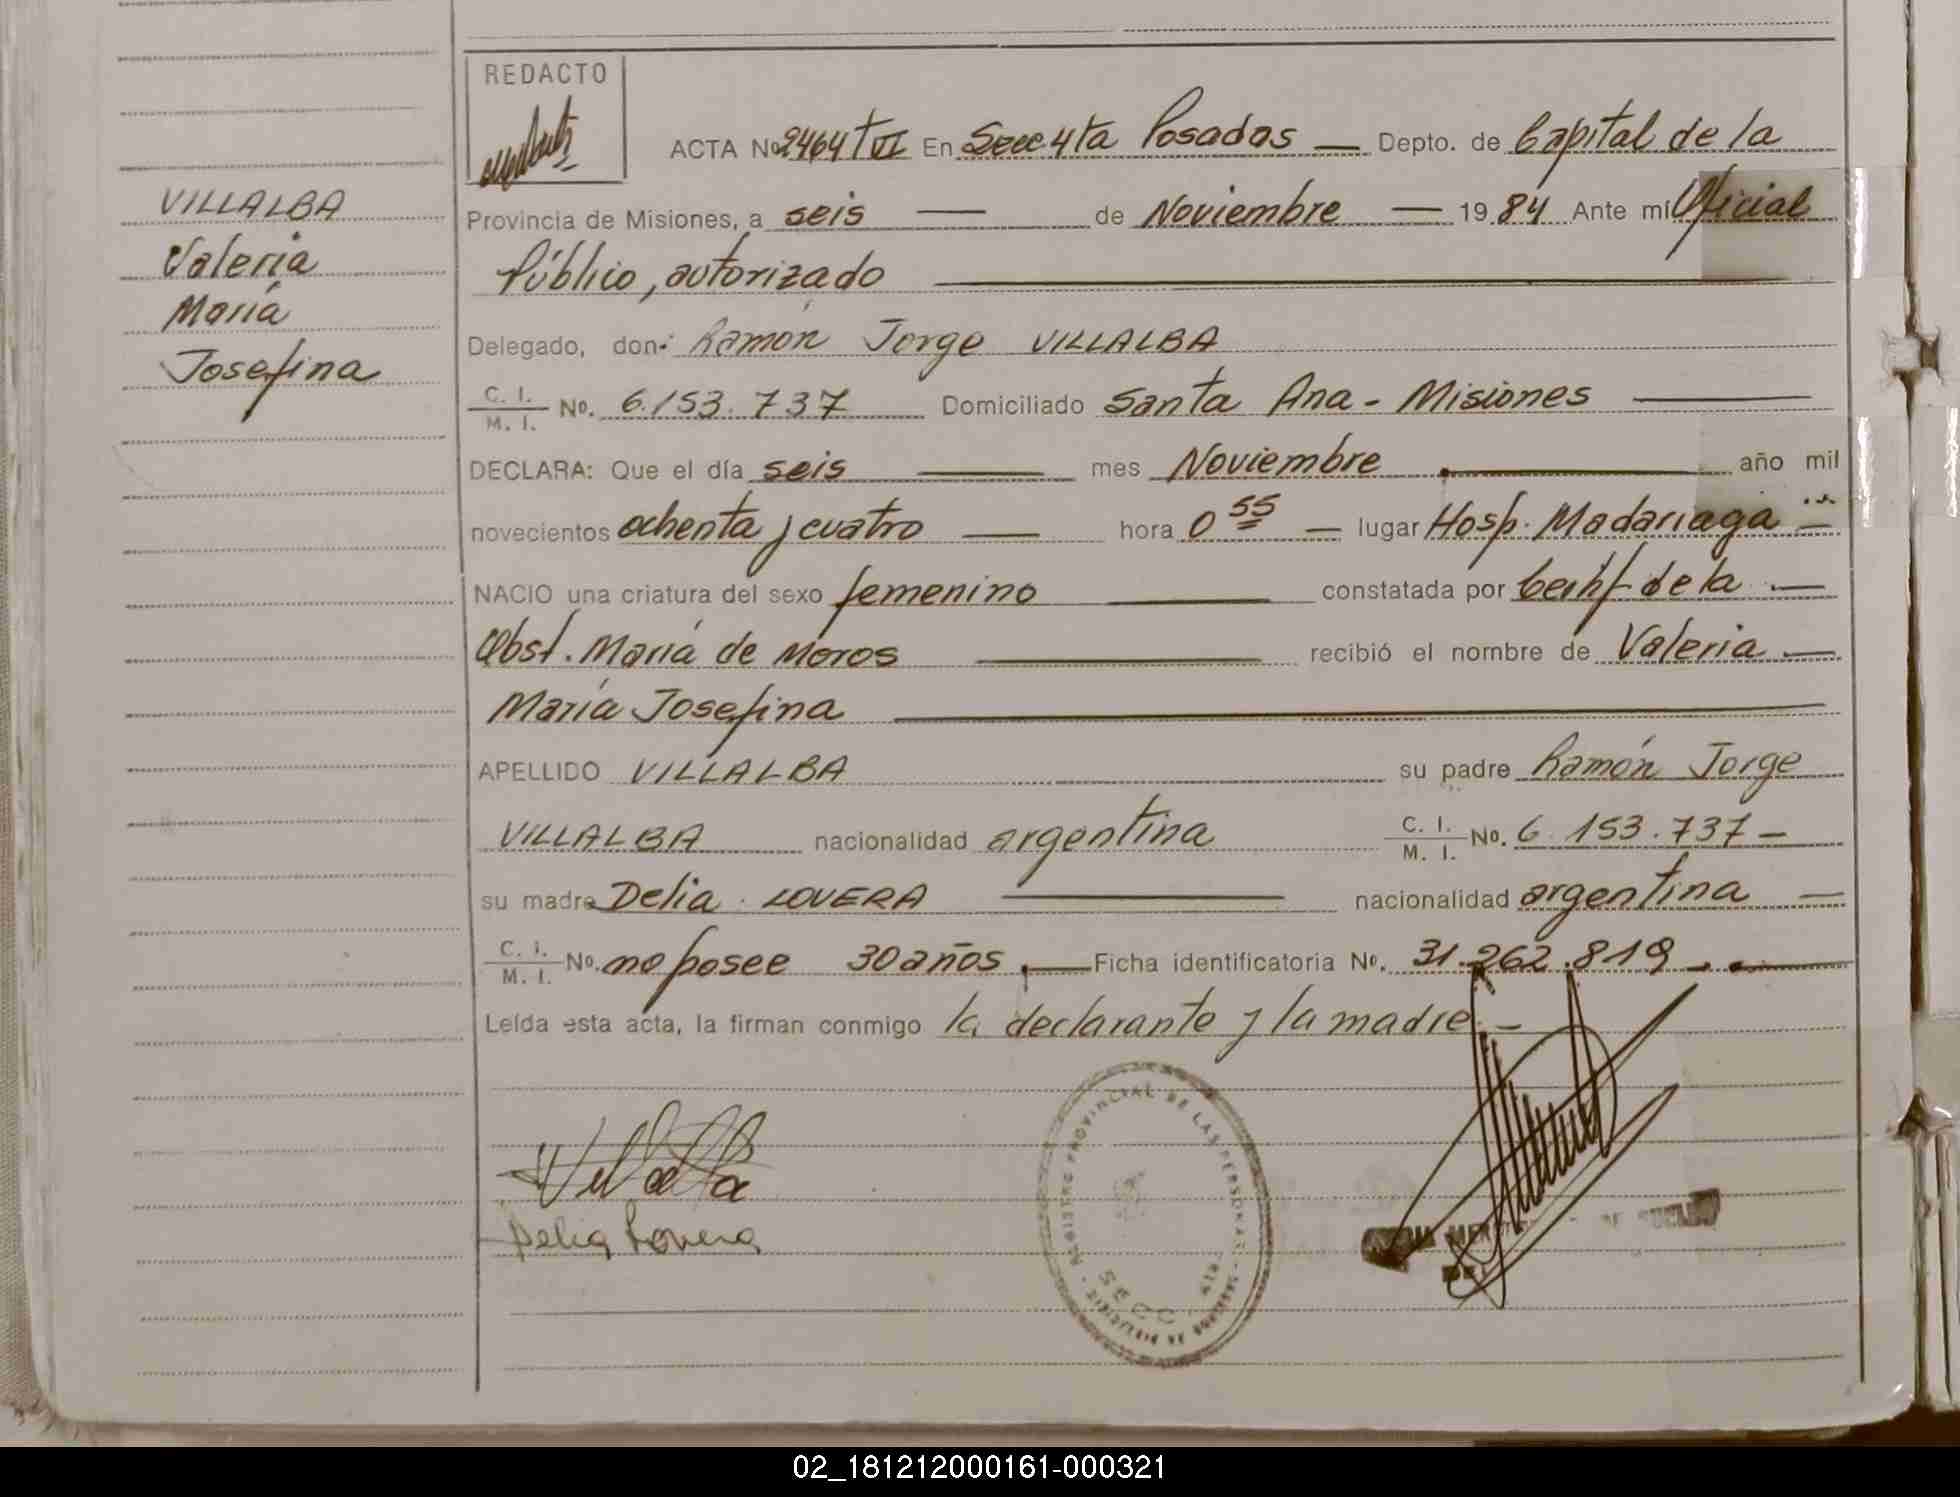 REDACTO
ACTA No 2464 T VI En Secc 4ta Posadas — Depto. de Capital de la
VILLALBA
Valeria
María
Josefina
Provincia de Misiones, a seis — de Noviembre — 19 84 Ante mí Oficial
Público, autorizado
Delegado, don: Ramón Jorge VILLALBA
C. I. M. I. No. 6.153.737 Domiciliado Santa Ana - Misiones
DECLARA: Que el día seis — mes Noviembre año mil
novecientos ochenta y cuatro — hora 0 55 — lugar Hosp. Madariaga
NACIO una criatura del sexo femenino — constatada por Certif de la —
Obst. María de Moros — recibió el nombre de Valeria —
María Josefina
APELLIDO VILLALBA su padre Ramón Jorge
VILLALBA nacionalidad argentina C. I. M. I. No. 6.153.737 —
su madre Delia LOVERA — nacionalidad argentina —
C. I. M. I. No. no posee 30 años. — Ficha identificatoria No. 31.262.819. —
Leída esta acta, la firman conmigo la declarante y la madre. —
Villalba
Delia Lovera
REGISTRO PROVINCIAL DE LAS PERSONAS
SECC. 4ta
DE SUCLEO
02_181212000161-000321